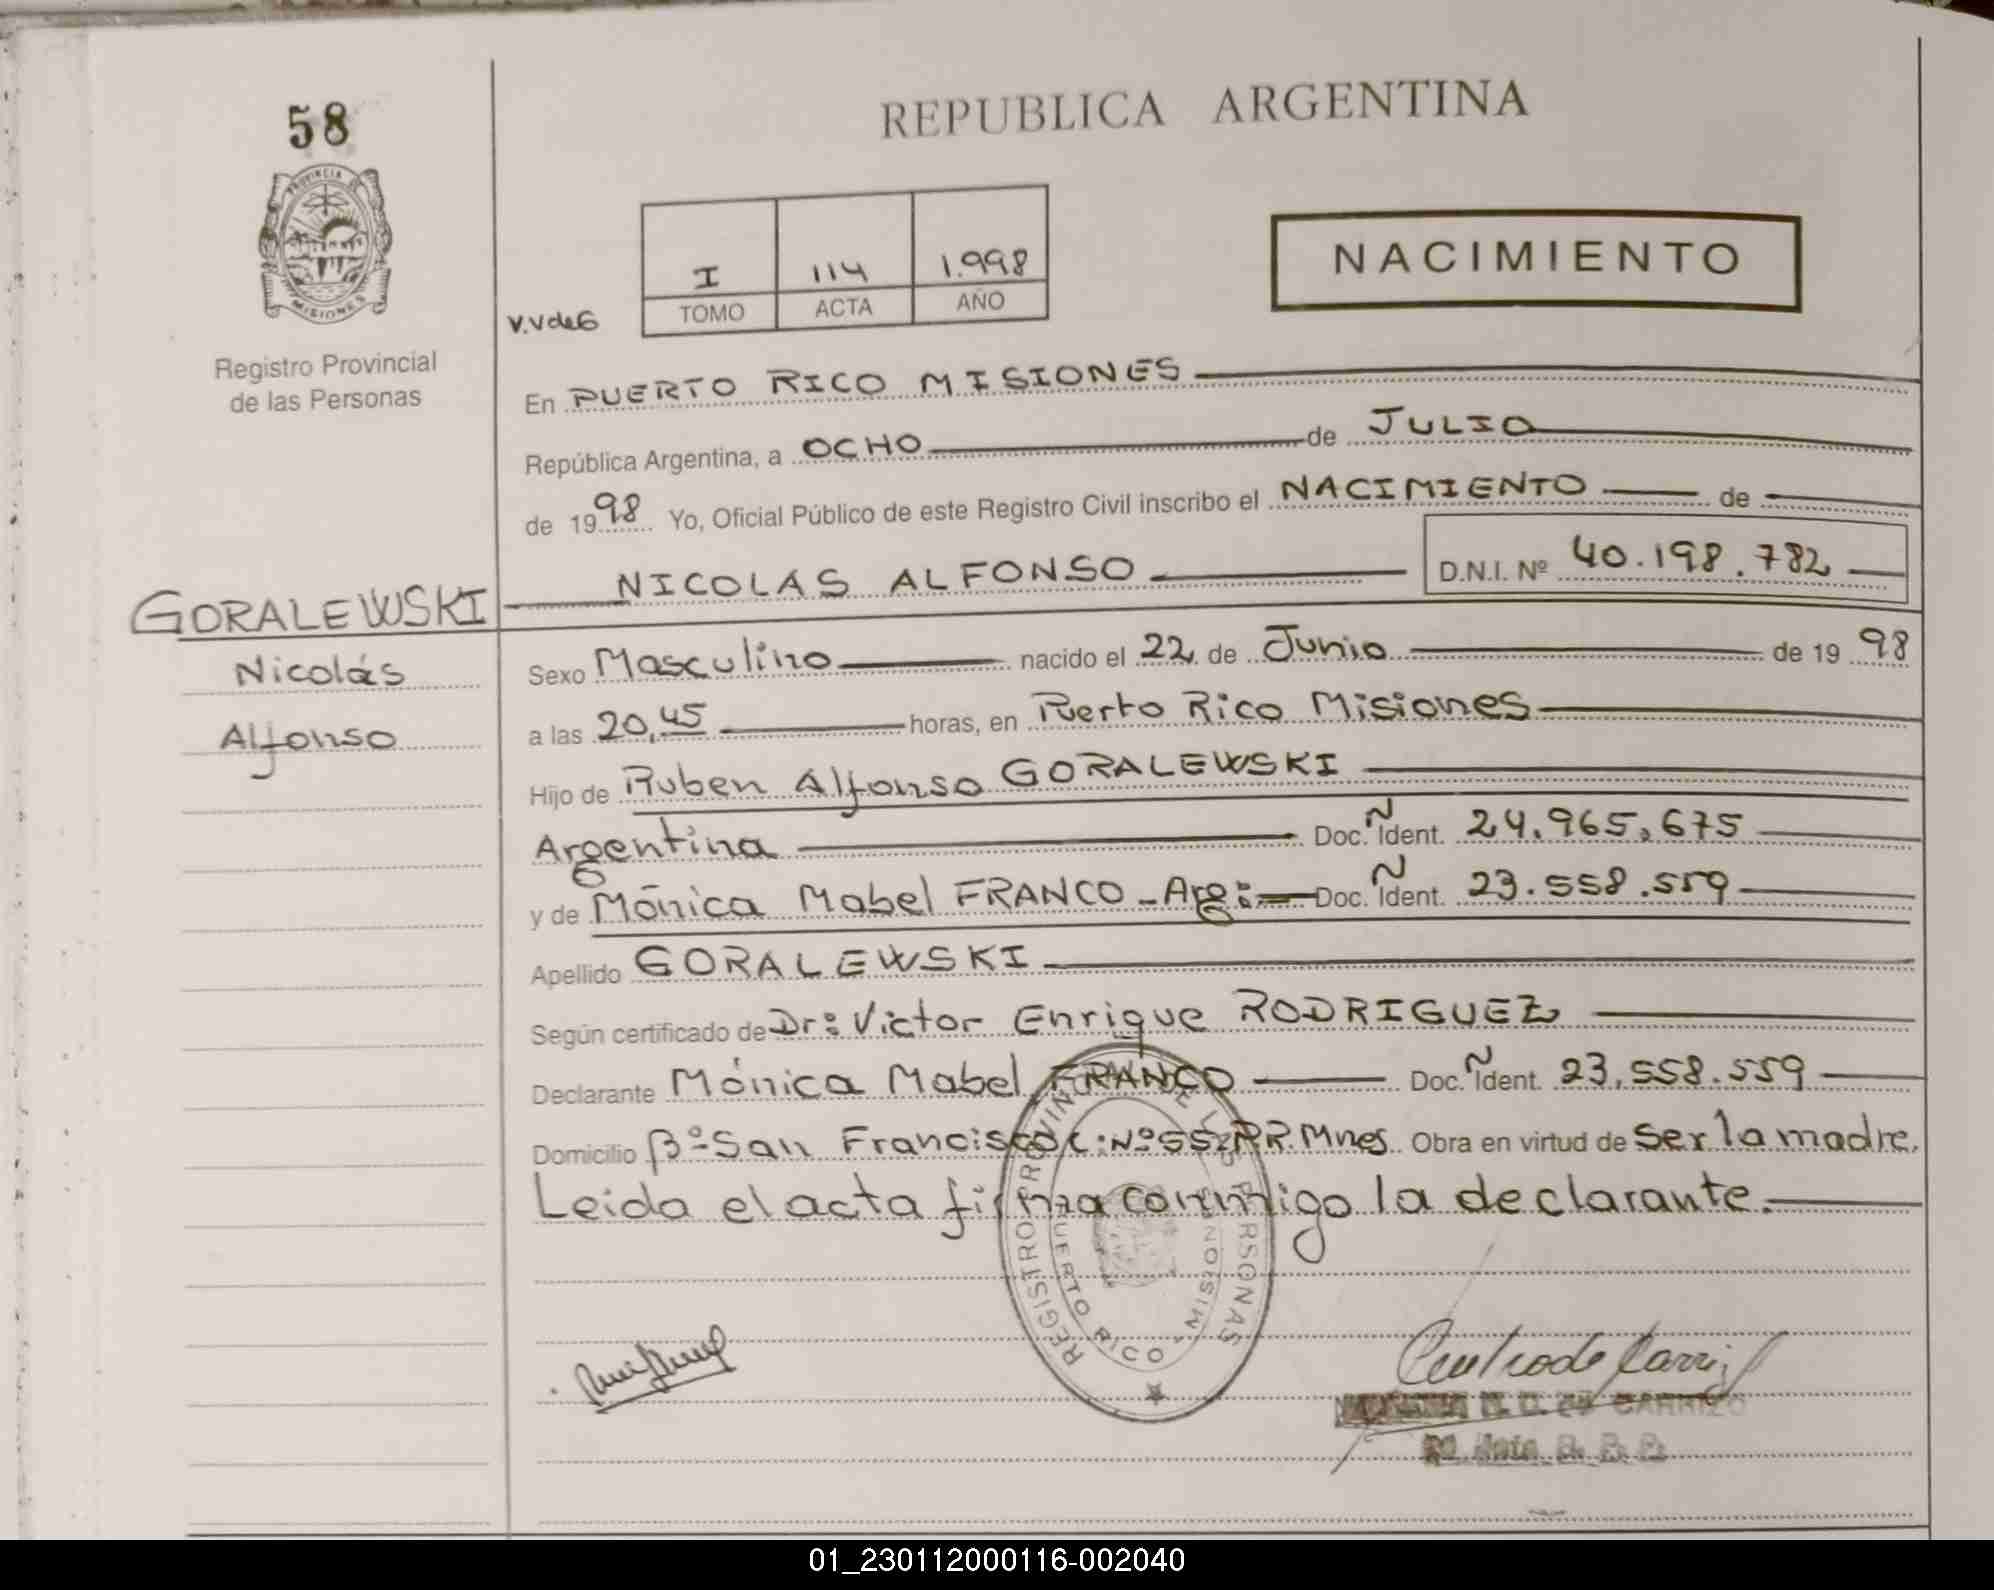 58
REPUBLICA ARGENTINA
PROVINCIA DE
MISIONES
I 114 1.998
TOMO ACTA AÑO
NACIMIENTO
V.V de G
Registro Provincial
de las Personas
En PUERTO RICO MISIONES
República Argentina, a OCHO de JULIO
de 1998 Yo, Oficial Público de este Registro Civil inscribo el NACIMIENTO de
NICOLÁS ALFONSO D.N.I. Nº 40.198.782
GORALEWSKI
Nicolás
Alfonso
Sexo Masculino nacido el 22 de Junio de 1998
a las 20,45 horas, en Puerto Rico Misiones
Hijo de Ruben Alfonso GORALEWSKI
Argentina Doc. Ñ Ident. 24.965.675
y de Mónica Mabel FRANCO - Arg: Doc. Ñ Ident. 23.558.559
Apellido GORALEWSKI
Según certificado de Dr: Victor Enrique RODRIGUEZ
Declarante Mónica Mabel FRANCO Doc. Ñ Ident. 23.558.559
Domicilio Bº San Francisco C: Nº 552 P.R. Mnes. Obra en virtud de Ser la madre.
Leida el acta firma conmigo la declarante.
REGISTRO PROVINCIAL DE LAS PERSONAS
PUERTO RICO - MISIONES
CARRIZO
01_230112000116-002040